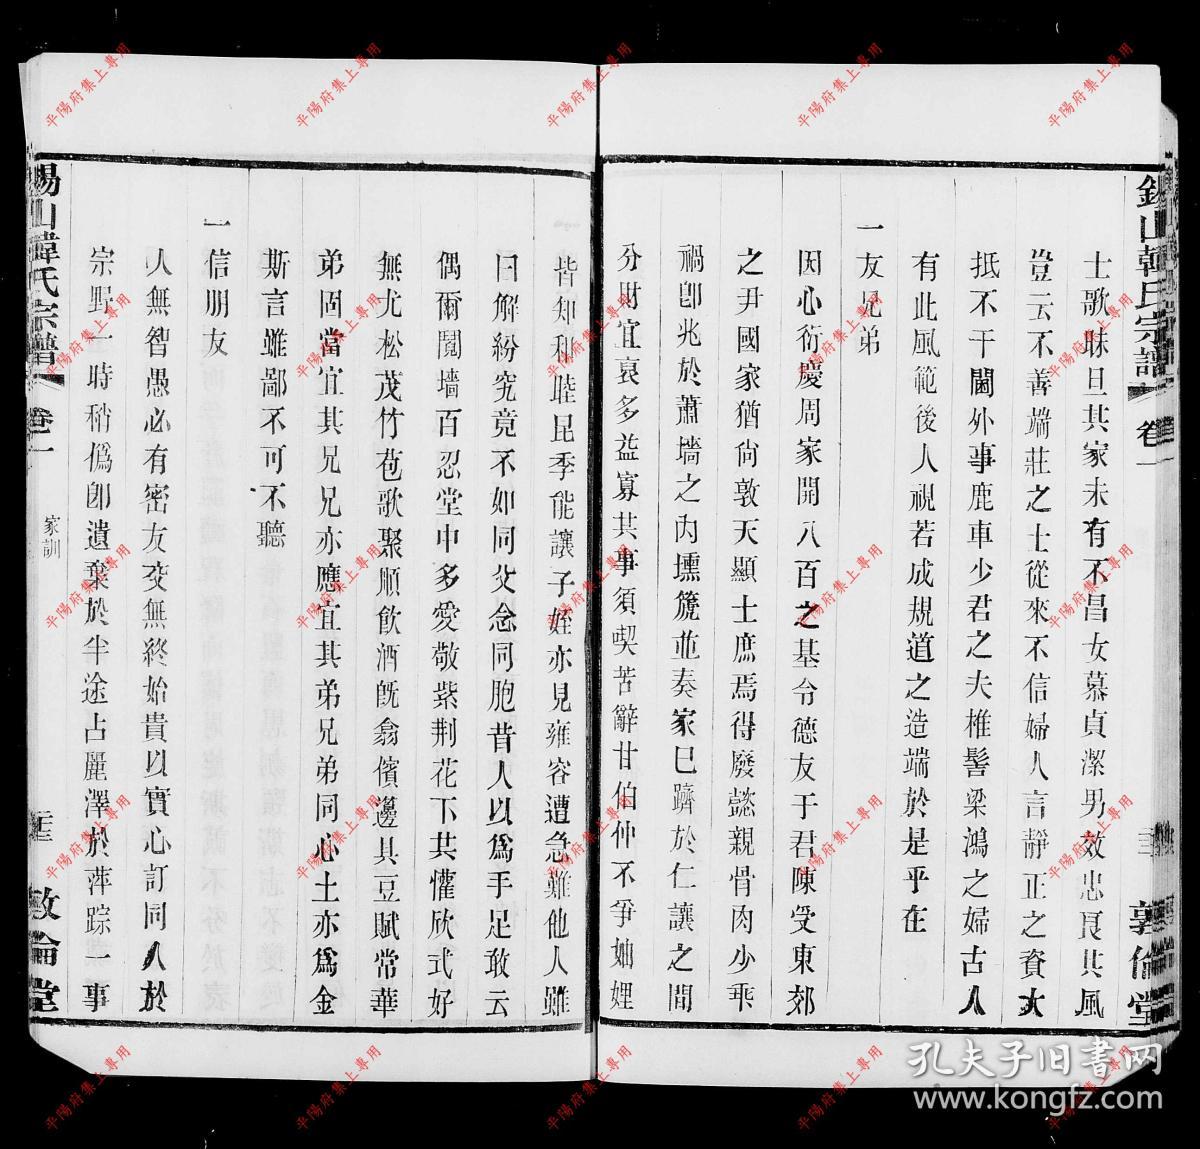 錫山韓氏宗譜 卷一
敦倫堂
士歌昧旦其家未有不昌女慕貞潔男效忠良其風
豈云不善端莊之士從來不信婦人言靜正之資大
抵不干閫外事鹿車少君之夫椎髻梁鴻之婦古人
有此風範後人視若成規道之造端於是乎在
一友兄弟
因心衍慶周家開八百之基令德友于君陳受東郊
之尹國家猶尚敦天顯士庶焉得廢懿親骨肉少乖
禍卽兆於蕭墻之內壎箎並奏家已躋於仁讓之間
分財宜裒多益寡共事須喫苦辭甘伯仲不爭妯娌
皆知和睦昆季能讓子姪亦見雍容遭急難他人雖
曰解紛究竟不如同父念同胞昔人以爲手足敢云
偶爾鬩墻百忍堂中多愛敬紫荆花下共懽欣式好
無尤松茂竹苞歌聚順飲酒旣翕儐邊具豆賦常華
弟固當宜其兄兄亦應宜其弟兄弟同心土亦爲金
斯言雖鄙不可不聽
一信朋友
人無智愚必有密友交無終始貴以實心訂同人於
宗野一時稍僞卽遺棄於半途占麗澤於萍踪一事
錫山韓氏宗譜 卷一 家訓
敦倫堂
平陽府集上專用
孔夫子旧书网
www.kongfz.com